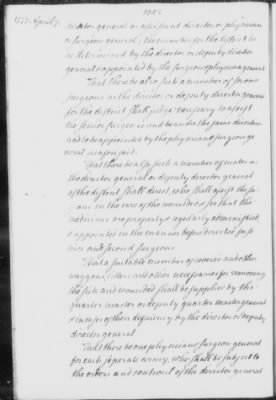 1777. April 7.
director general or assistant director or physician
& surgeon general; the number for the district to
be determined by the director or deputy director
general & appointed by the surgeon & physician general
That there be also such a number of second
surgeons as the director or deputy director general
for the district shall judge necessary to assist
the senior surgeons and be under the same direction
and to be appointed by the physician & surgeon ge
neral as aforesaid
That there be also such a number of mates as
the director general or deputy director general
of the district shall direct, who shall assist the sur
geons in the care of the wounded & see that the
medicines are properly & regularly administered,
& appointed in the manner before directed for se
nior and second surgeons
That a suitable number of covered and other
waggons, litters and other necessaries for removing
the sick and wounded shall be supplied by the
quarter master or deputy quarter master general
& in case of their deficiency by the director or deputy
director general
That there be one physician & surgeon general
for each seperate army, who shall be subject to
the orders and controul of the director general